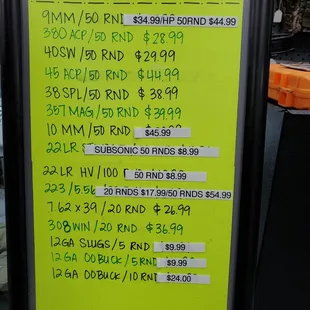 9MM/50 RN $34.99/HP 50RND $44.99
380 ACP/50 RND $28.99
40SW/50 RND $29.99
45 ACP/50 RND $44.99
38 SPL/50 RND $38.99
357 MAG/50 RND $39.99
10 MM/50 RND $45.99
22LR SUBSONIC 50 RNDS $8.99
22LR HV/100 50 RND $8.99
223/5.56 20 RNDS $17.99/50RNDS $54.99
7.62 x 39/20 RND $26.99
308 WIN/20 RND $36.99
12GA SLUGS/5 RND $9.99
12GA OOBUCK/5 RND $9.99
12GA OOBUCK/10 RND $24.00